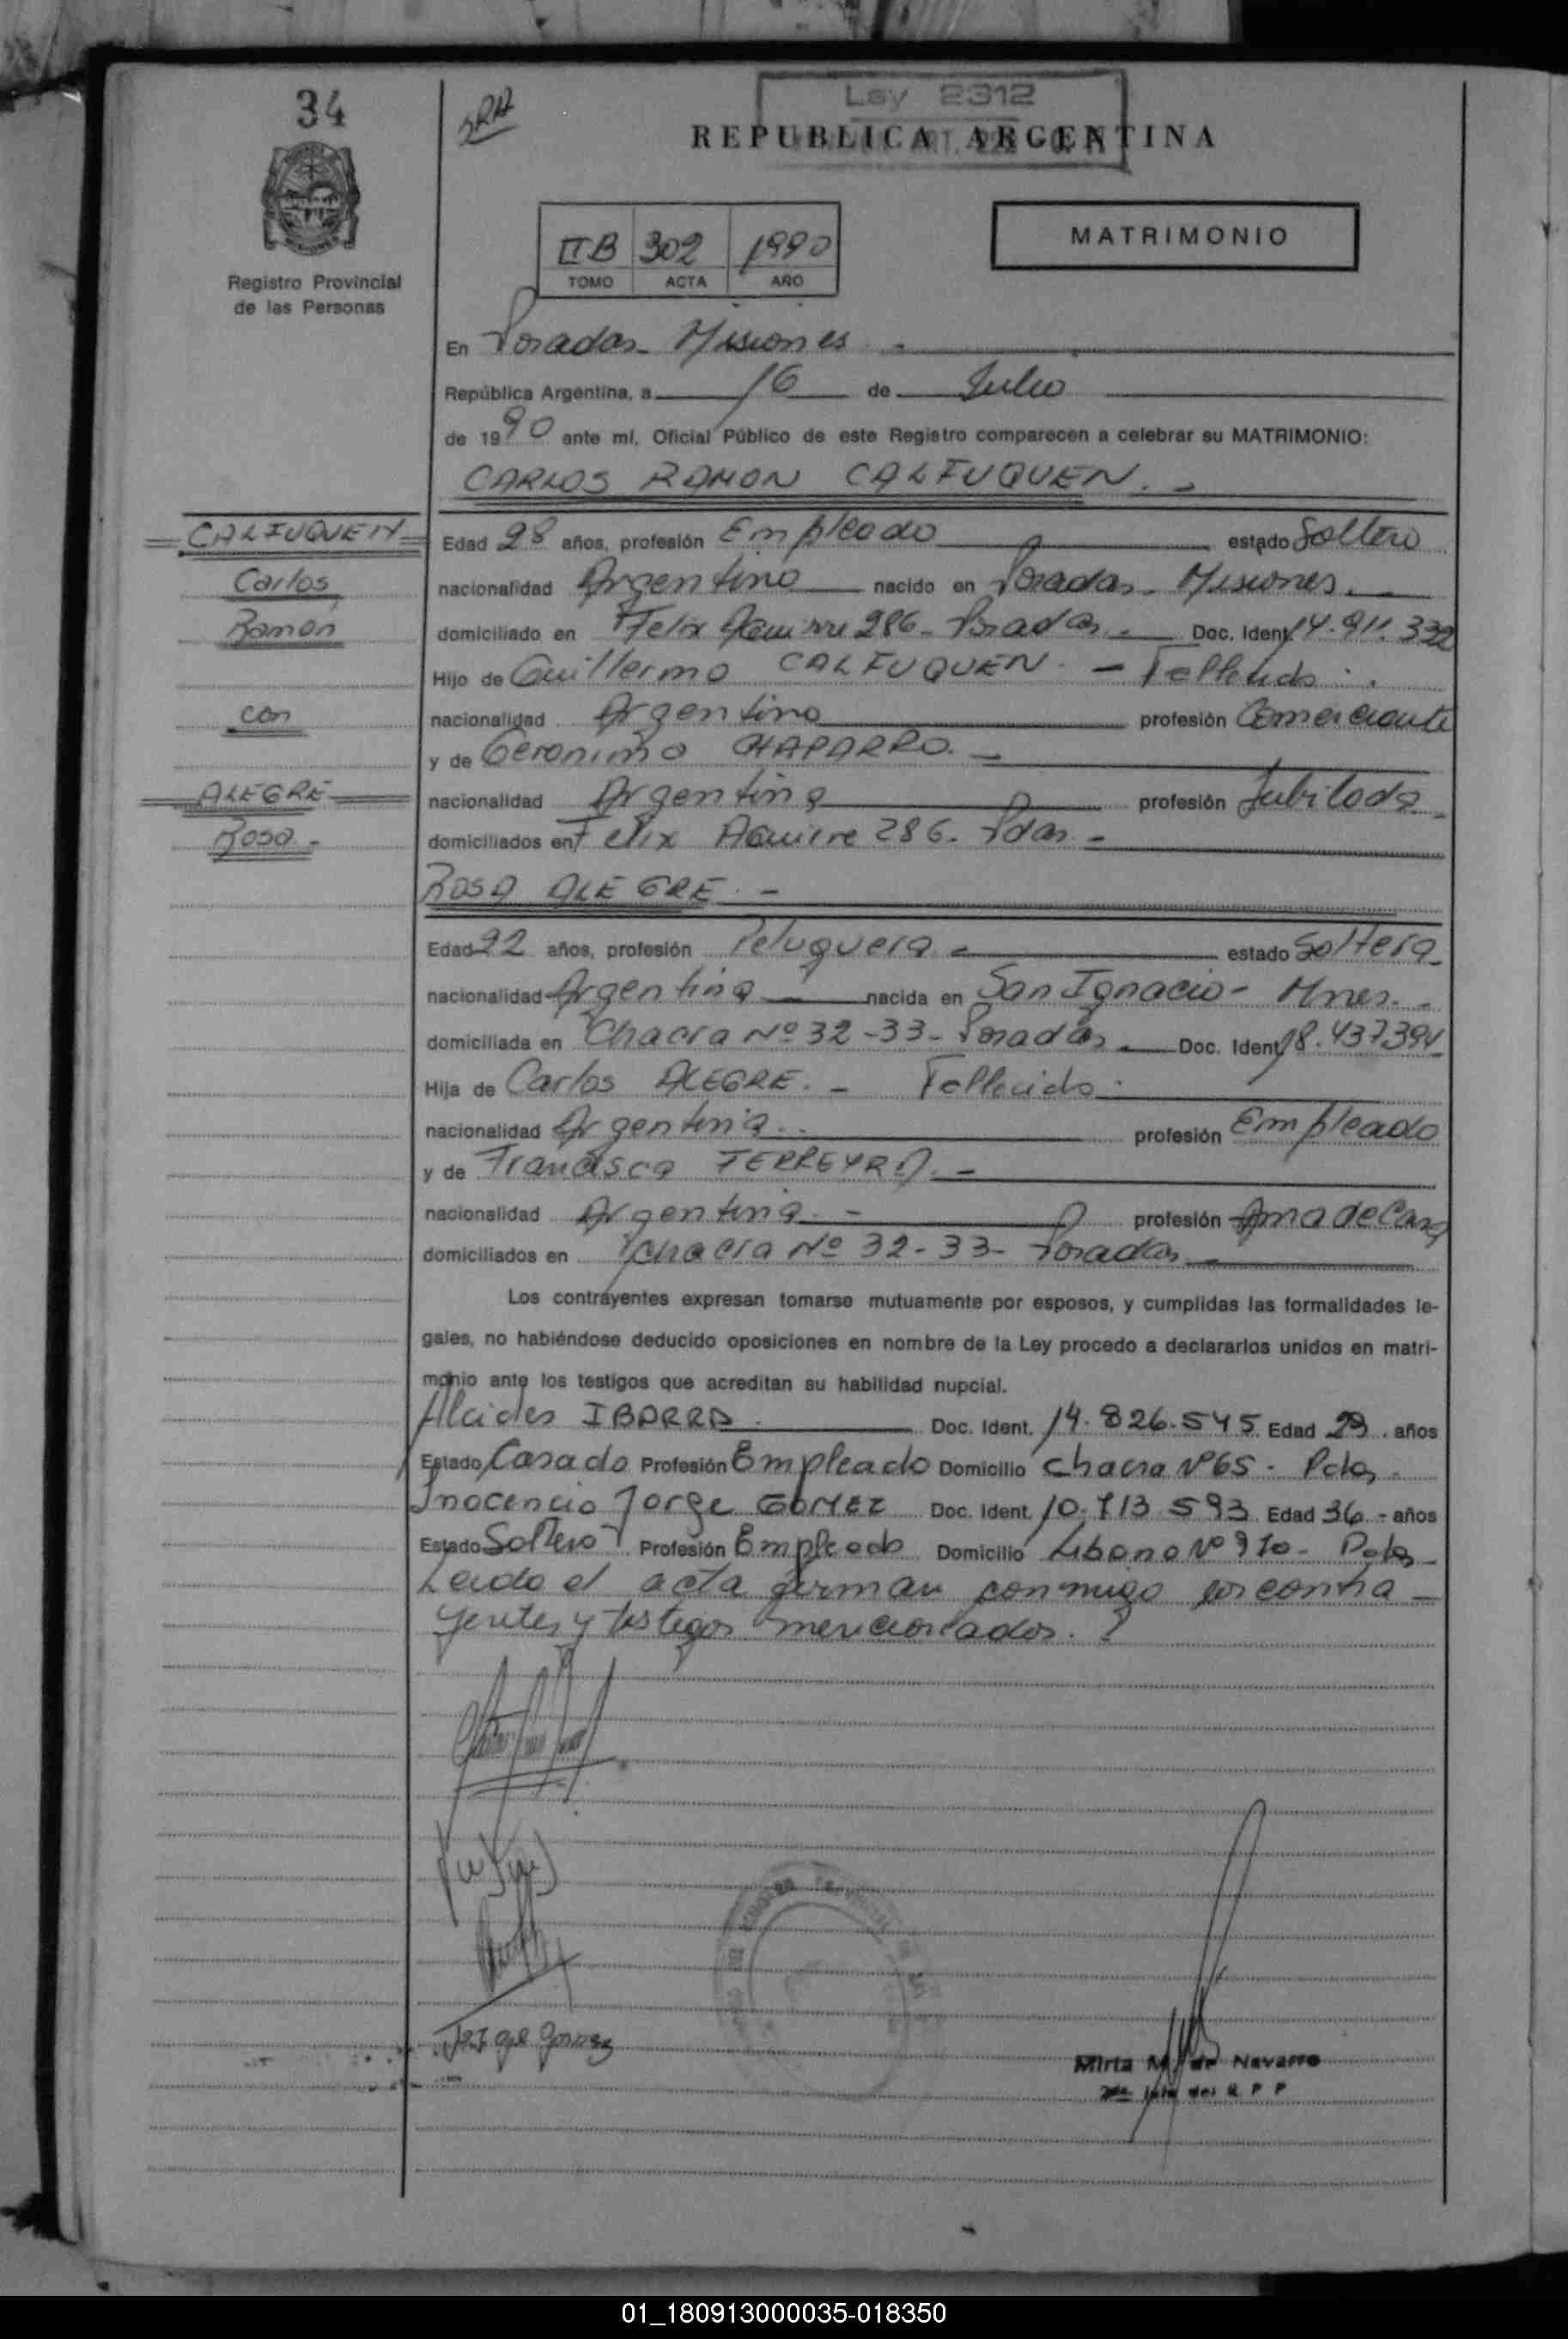 34
Ley 2312
REPUBLICA ARGENTINA
IIB 302 1990
TOMO ACTA AÑO
MATRIMONIO
Registro Provincial
de las Personas
En Posadas - Misiones -
República Argentina, a 16 de Julio
de 1990 ante mí, Oficial Público de este Registro comparecen a celebrar su MATRIMONIO:
CARLOS RAMON CALFUQUEN. -
CALFUQUEN
Carlos
Ramón
con
ALEGRE
Rosa -
Edad 28 años, profesión Empleado estado Soltero
nacionalidad Argentino nacido en Posadas - Misiones.
domiciliado en Felix Aguirre 286 - Posadas - Doc. Ident. 14.911.332
Hijo de Guillermo CALFUQUEN - Fallecido.
nacionalidad Argentino profesión Comerciante
y de Geronima CHAPARRO. -
nacionalidad Argentina profesión Jubilada
domiciliados en Felix Aguirre 286 - Pdas -
ROSA ALEGRE. -
Edad 22 años, profesión Peluquera - estado Soltera
nacionalidad Argentina nacida en San Ignacio - Mnes. -
domiciliada en Chacra Nº 32-33 - Posadas - Doc. Ident. 18.437.394
Hija de Carlos ALEGRE. - Fallecido.
nacionalidad Argentina. profesión Empleado
y de Francisca FERREYRA. -
nacionalidad Argentina. - profesión Ama de Casa
domiciliados en Chacra Nº 32-33 - Posadas
Los contrayentes expresan tomarse mutuamente por esposos, y cumplidas las formalidades le-
gales, no habiéndose deducido oposiciones en nombre de la Ley procedo a declararlos unidos en matri-
monio ante los testigos que acreditan su habilidad nupcial.
Alcides IBARRA. Doc. Ident. 14.826.545 Edad 29. años
Estado Casado Profesión Empleado Domicilio Chacra Nº 65 - Pdas.
Inocencio Jorge GOMEZ Doc. Ident. 10.713.593 Edad 36 - años
Estado Soltero Profesión Empleado Domicilio Libano Nº 970 - Pdas
Leido el acta firman conmigo los contra-
yentes y testigos mencionados.
Mirta M. de Navarro
del R P P
01_180913000035-018350